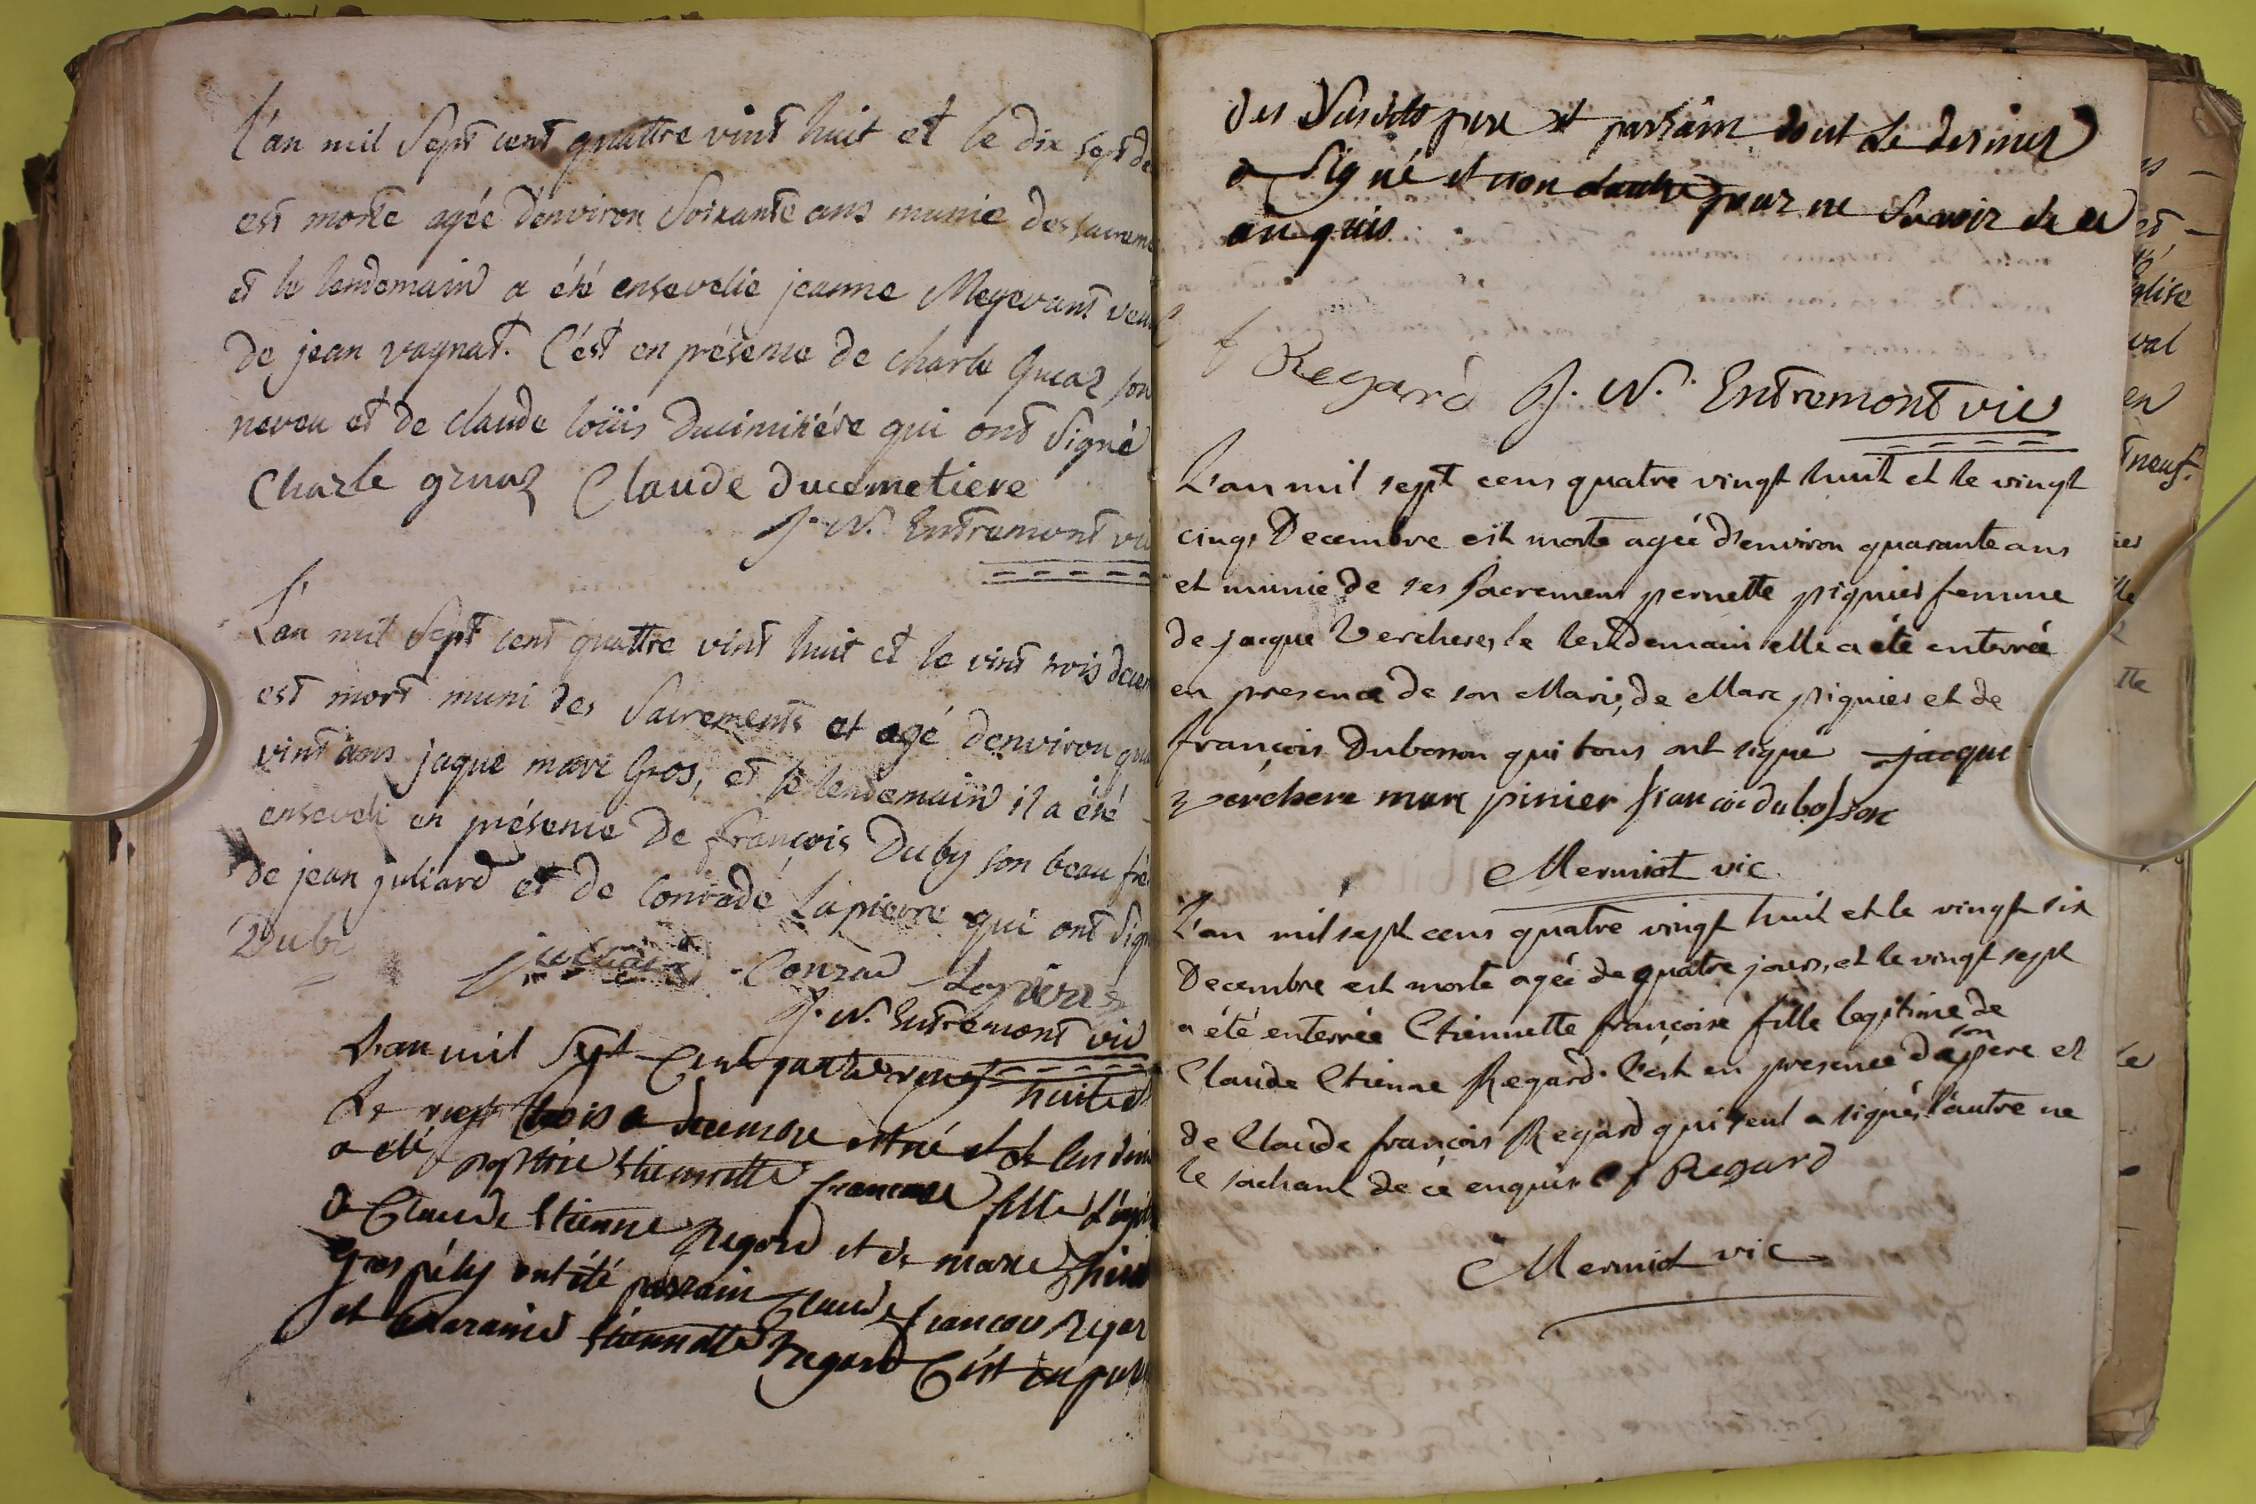 L'an mil Sept cent quattre vint huit et le dix sept de
est morte agée d'environ Soixante ans munie des sacrem
et le lendemain a été ensevelie jeanne Megevant veu
de jean vagnat. C'est en présence de charle Gucaz son
neveu et de claude loüis Ducimitiére qui ont Signé
Charle gruaz Claude Ducemetiere
J. N. Entremont vi
L'an mil Sept cent quattre vint huit et le vint trois decem
est mort muni des Sacrements et agé d'environ qua
vint ans jaque marc Gros, et le lendemain il a été
enseveli en présence de françois Duby son beau frè
de jean juliard et de Conrade Lapierre qui ont Sign
Dubi
juliard Conrad Lapiere
J. N. Entremont vic
L'an mil Sept Cent quatre vingt huit et
Le vingt trois decembre est né et le lendem
a été baptisée Etiennette francoise fille Légit
de Claude Etienne Regard et de marie
gros pély ont été parrain Claude francois Regar
et Maraine Etiennette Regard C'est en pres
des Susdits pere et parrain dont Le dernier
a Signé et non l'autre pour ne Scavoir de ce
enquis
C f Regard J. N. Entremont vic
L'an mil sept cens quatre vingt huit et le vingt
cinq Decembre est morte agée d'environ quarante ans
et munie de ses Sacremens pernette piguier femme
de jacque Vercheres, le lendemain elle a été enterrée
en presence de son Mari, de Marc piguier et de
françois Dubosson qui tous ont signé jacque
verchere marc pinier francoi dubosson
Mermiot vic
L'an mil sept cens quatre vingt huit et le vingt six
Decembre est morte agée de quatre jours, et le vingt sept
a été enterrée Etiennette françoise fille legitime de
Claude Etienne Regard. C'est en presence de son pere et
de Claude françois Regard qui seul a signé, l'autre ne
le sachant de ce enquis C f Regard
Mermiot vic